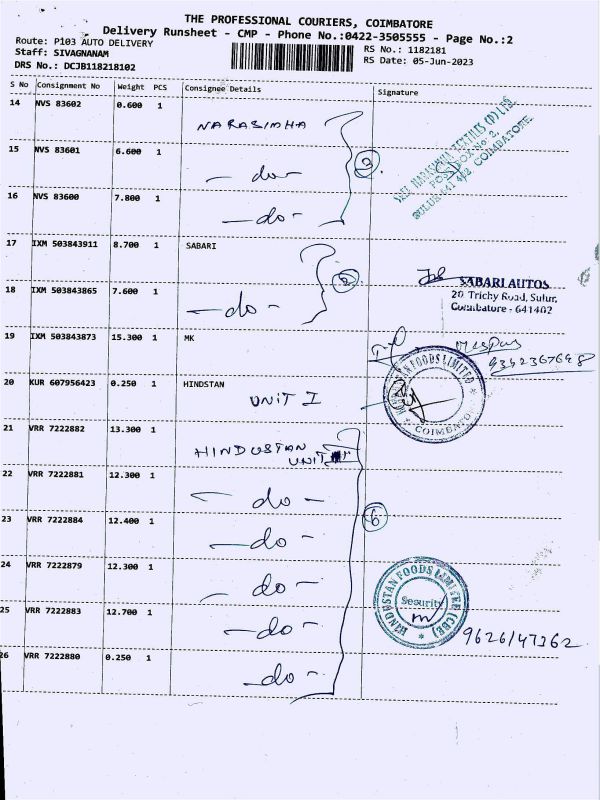 THE PROFESSIONAL COURIERS, COIMBATORE
Delivery Runsheet - CMP - Phone No.:0422-3505555 - Page No.:2
Route: P103 AUTO DELIVERY
RS No.: 1182181
Staff: SIVAGNANAM
RS Date: 05-Jun-2023
DRS No.: DCJB118218102
S No Consignment No Weight PCS Consignee Details Signature
14 NVS 83602 0.600 1 NARASIMHA
15 NVS 83601 6.600 1 - do -
3
SREE NARASIMHA TEXTILES (P) LTD.
POST BOX No. 2,
SULUR-641 402 COIMBATORE.
16 NVS 83600 7.800 1 - do -
17 IXM 503843911 8.700 1 SABARI
2
SABARI AUTOS
20, Trichy Road, Sulur,
Coimbatore - 641402
18 IXM 503843865 7.600 1 - do -
19 IXM 503843873 15.300 1 MK
20 KUR 607956423 0.250 1 HINDSTAN
UNIT I
HINDUSTAN FOODS LIMITED
* COIMBATORE *
21 VRR 7222882 13.300 1 HINDUSTAN
UNIT
22 VRR 7222881 12.300 1 - do -
6
23 VRR 7222884 12.400 1 - do -
24 VRR 7222879 12.300 1 - do -
HINDUSTAN FOODS LIMITED (CBE) *
Security
25 VRR 7222883 12.700 1 - do -
26 VRR 7222880 0.250 1 - do -